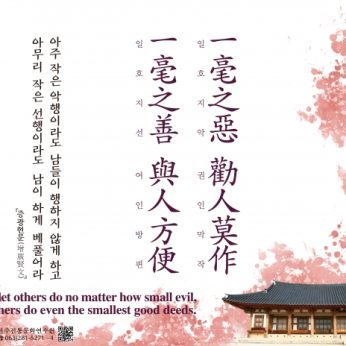 一毫之惡 勸人莫作
일호지악 권인막작
一毫之善 與人方便
일호지선 여인방편
아주 작은 악행이라도 남들이 행하지 않게 하고
아무리 작은 선행이라도 남이 하게 베풀어라
『증광현문(增廣賢文)』
let others do no matter how small evil,
hers do even the smallest good deeds.
전주전통문화연수원
☎ 063)281-5271~4